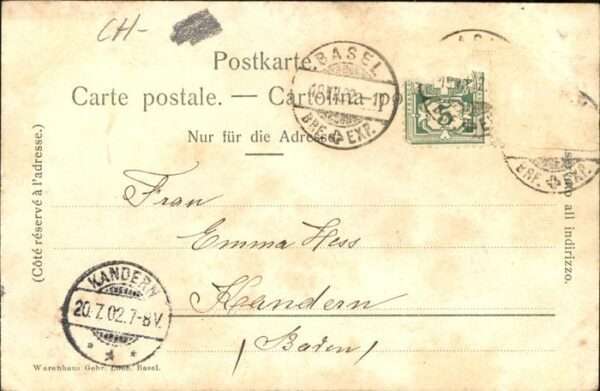 CH-
Postkarte.
Carte postale. — Cartolina po
Nur für die Adresse.
(Côté réservé à l'adresse.)
BASEL
BRF. EXP.
5
BRF. EXP.
all indirizzo.
Frau
Emma Hess
Kandern
(Baden)
KANDERN
20.7.02.7-8V.
Warenhaus Gebr. Loeb. Basel.